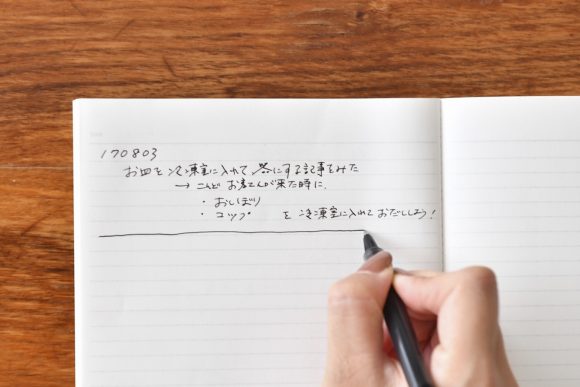 170803
お皿を冷凍室に入れて 氷にする記事をみた
→ こんど お客さんが来た時に、
・おしぼり
・コップ を冷凍室に入れておだししよう!